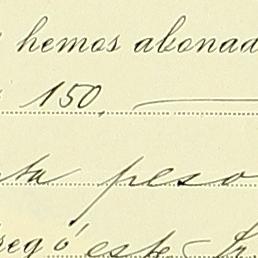 hemos abonad
150,
ta peso
regó este Sr.